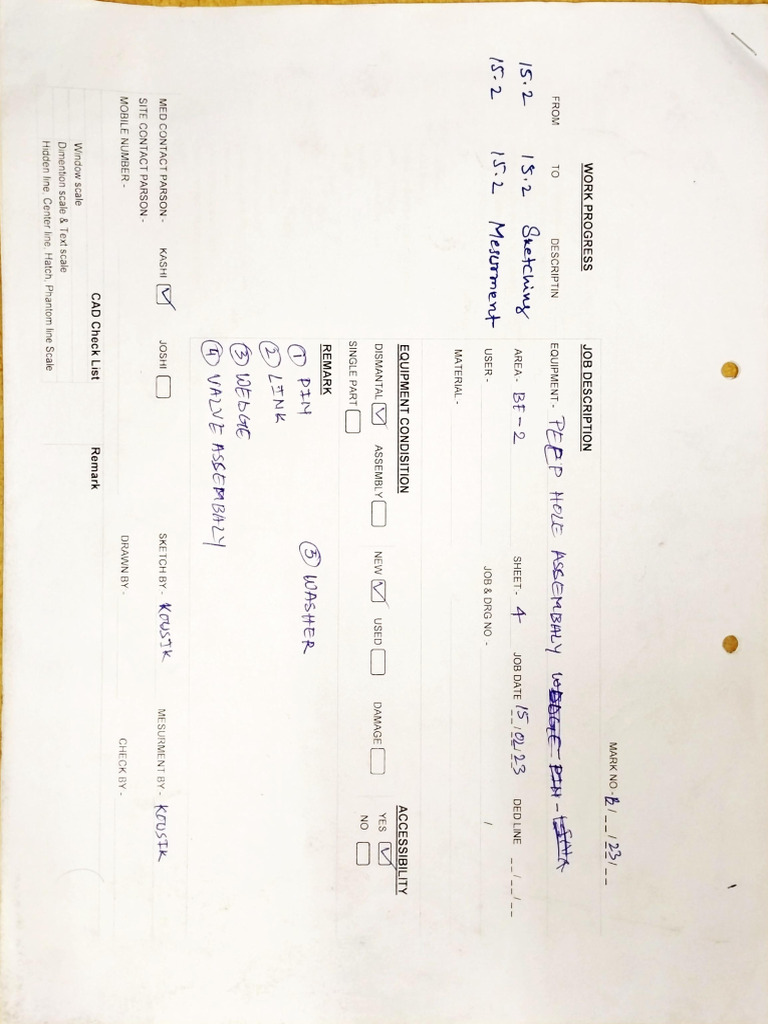 MARK NO - B/__/23/__
WORK PROGRESS
FROM TO DESCRIPTIN
15.2 15.2 Sketching
15.2 15.2 Mesurment
JOB DESCRIPTION
EQUIPMENT - PEEP HOLE ASSEMBALY WEDGE - PIN -
AREA - BF-2 SHEET - 4 JOB DATE 15/02/23 DED LINE __/__/__
USER - JOB & DRG NO - /
MATERIAL -
EQUIPMENT CONDISITION
DISMANTAL ☑ ASSEMBLY ☐ NEW ☑ USED ☐ DAMAGE ☐
SINGLE PART ☐
ACCESSIBILITY
YES ☑
NO ☐
REMARK
① PIN ⑤ WASHER
② LINK
③ WEDGE
④ VALVE ASSEMBALY
MED CONTACT PARSON - KASHI ☑ JOSHI ☐ SKETCH BY - KOUSIK MESURMENT BY - KOUSIK
SITE CONTACT PARSON -
MOBILE NUMBER - DRAWN BY - CHECK BY -
CAD Check List Remark
Window scale
Dimention scale & Text scale
Hidden line, Center line, Hatch, Phantom line Scale